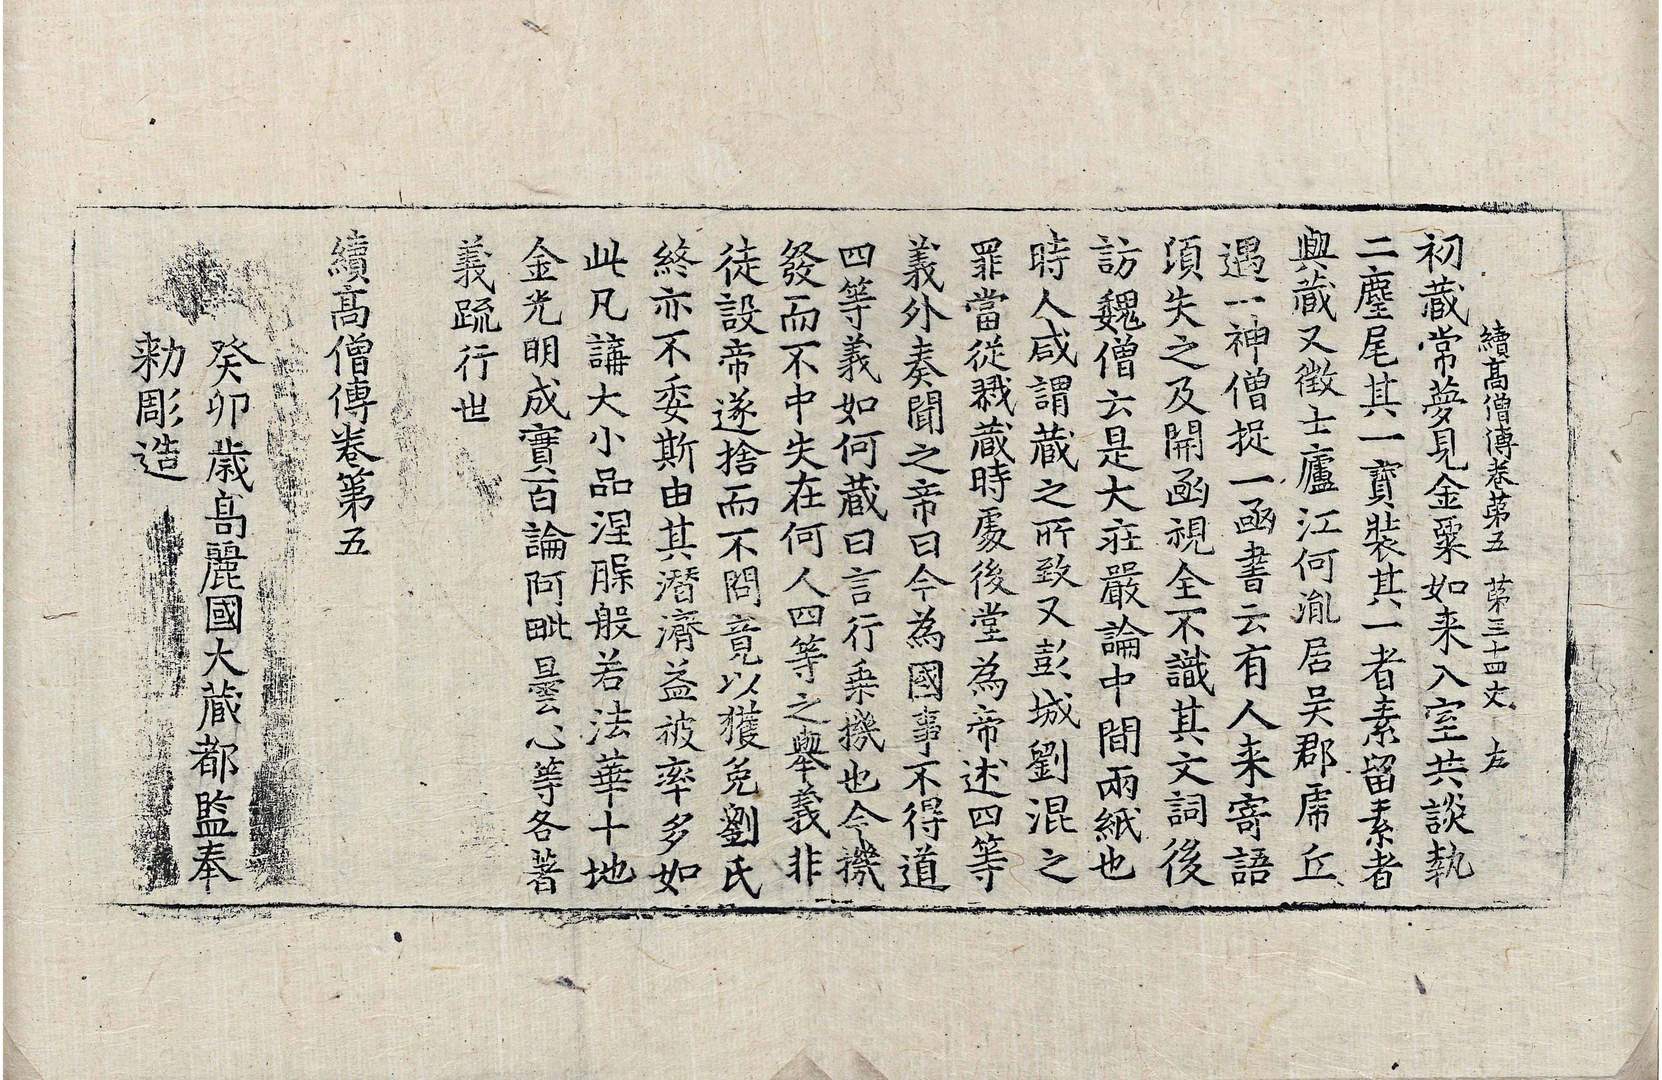 續高僧傳卷苐五　苐三十四丈　左
初藏常夢見金粟如来入室共談執
二麈尾其一寶裝其一者素留素者
與藏又徵士廬江何胤居吳郡虎丘
遇一神僧捉一函書云有人来寄語
頃失之及開函視全不識其文詞後
訪魏僧云是大莊嚴論中間兩紙也
時人咸謂藏之所致又彭城劉混之
罪當從戮藏時處後堂為帝述四等
義外奏聞之帝曰今為國事不得道
四等義如何藏曰言行乗機也今機
發而不中失在何人四等之舉義非
徒設帝遂捨而不問竟以獲免劉氏
終亦不委斯由其潛濟益被率多如
此凡講大小品涅槃般若法華十地
金光明成實百論阿毗曇心等各著
義疏行世
續高僧傳卷第五
癸卯歲高麗國大藏都監奉
勑彫造